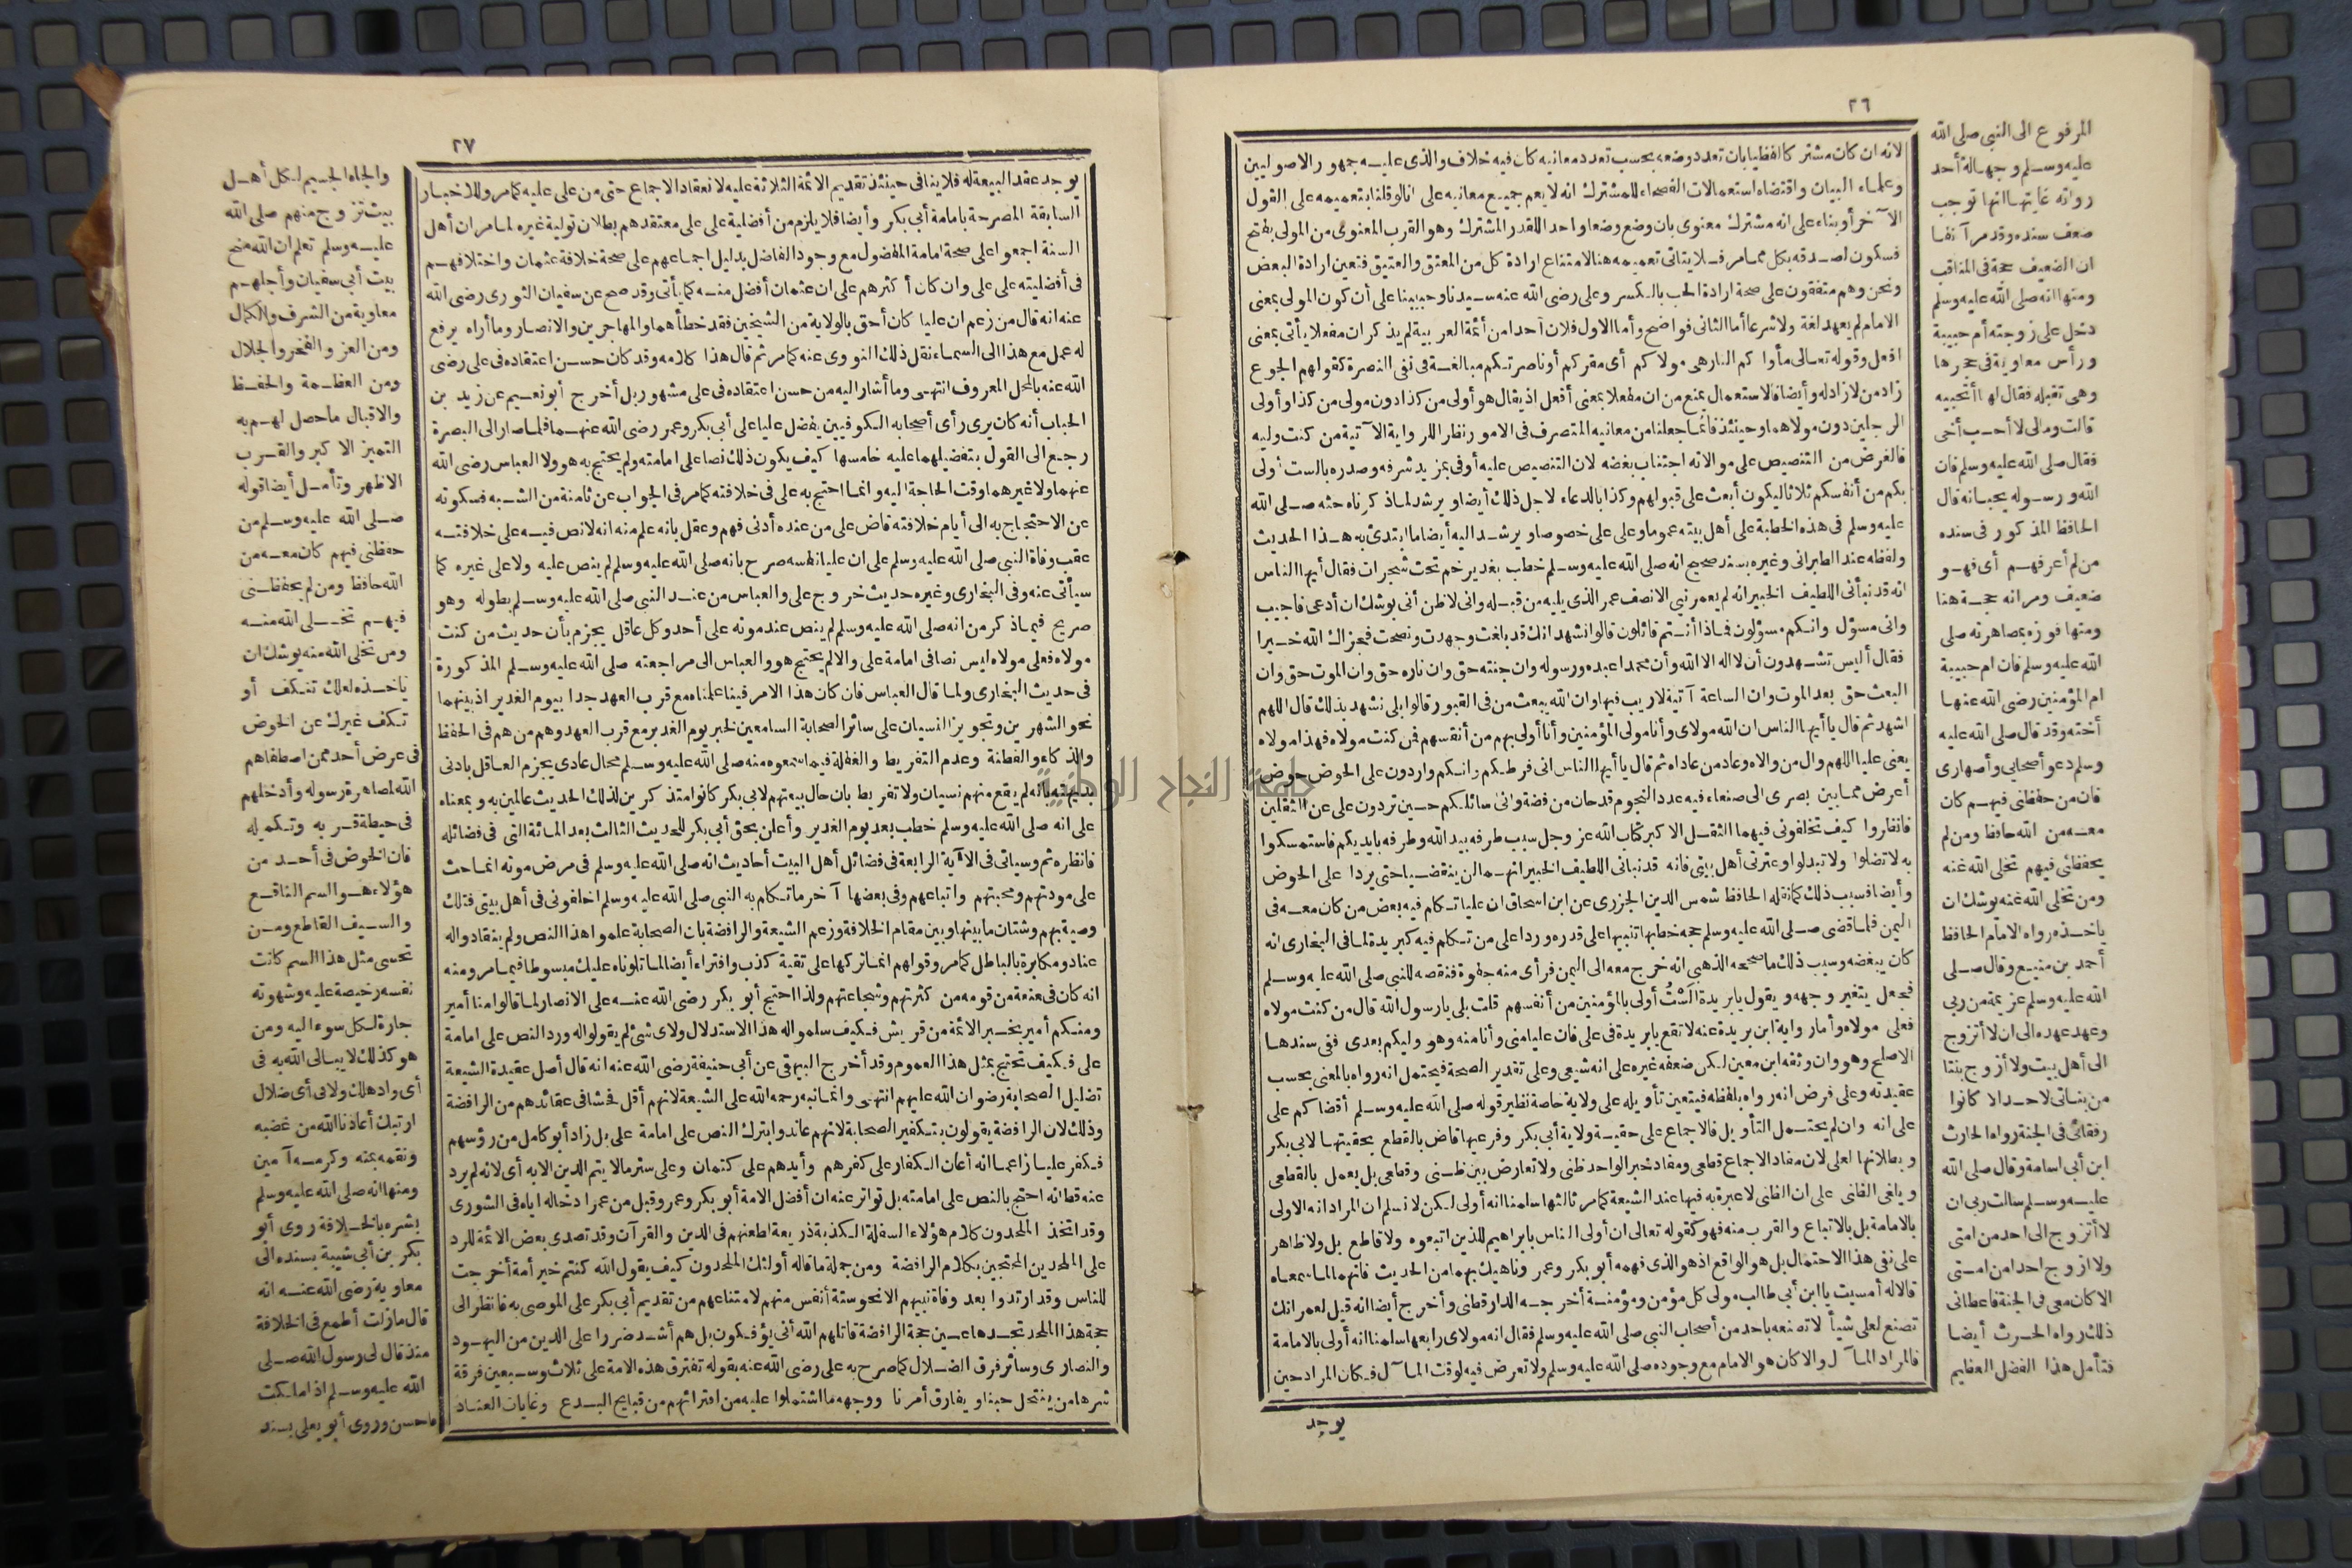 ٢٦
لانه ان كان مشتركا لفظيا بان تعدد وضعه بحسب تعدد معانيه كان فيه خلاف والذى عليه جمهور الاصوليين
وعلماء البيان واقتضاه استعمالات الفصحاء للمشترك انه لا يعم جميع معانيه على انا لو قلنا بتعميمه على القول
الآخر أو بناء على انه مشترك معنوى بان وضع وضعا واحدا للقدر المشترك وهو القرب المعنوى من المولى بفتح
فسكون لصدقه بكل ممامر فلا يتأتى تعميمه هنا لامتناع ارادة كل من المعتق والعتيق فتعين ارادة البعض
ونحن وهم متفقون على صحة ارادة الحب بالكسر وعلى رضى الله عنه سيدنا وحبيبنا على أن كون المولى بمعنى
الامام لم يعهد لغة ولا شرعا أما الثانى فواضح وأما الاول فلان أحدا من أئمة العربية لم يذكر ان مفعلا يأتى بمعنى
افعل وقوله تعالى مأواكم النار هى مولاكم أى مقركم أو ناصرتكم مبالغة فى نفى النصرة كقولهم الجوع
زاد من لا زاد له وأيضا فالاستعمال يمنع من ان مفعلا بمعنى أفعل اذ يقال هو أولى من كذا دون مولى من كذا وأولى
الرجلين دون مولاهما وحينئذ فانما جعلنا من معانيه المتصرف فى الامور نظرا للرواية الآتية من كنت وليه
فالغرض من التنصيص على موالاته اجتناب بغضه لان التنصيص عليه أوفى بمزيد شرفه وصدره بالست أولى
بكم من أنفسكم ثلاثا ليكون أبعث على قبولهم وكذا بالدعاء لاجل ذلك أيضا ويرشد لماذكرناه حثه صلى الله
عليه وسلم فى هذه الخطبة على أهل بيته عموما وعلى على خصوصا ويرشد اليه أيضا ما ابتدئ به هذا الحديث
ولفظه عند الطبرانى وغيره بسند صحيح انه صلى الله عليه وسلم خطب بغدير خم تحت شجرات فقال أيها الناس
انه قد نبأنى اللطيف الخبير انه لم يعمر نبى الا نصف عمر الذى يليه من قبله وانى لاظن أنى يوشك ان أدعى فاجيب
وانى مسؤل وانكم مسؤلون فماذا أنتم قائلون قالوا نشهد انك قد بلغت وجهدت ونصحت فجزاك الله خيرا
فقال أليس تشهدون أن لا اله الا الله وأن محمدا عبده ورسوله وان جنته حق وان ناره حق وان الموت حق وان
البعث حق بعد الموت وان الساعة آتية لا ريب فيها وان الله يبعث من فى القبور قالوا بلى نشهد بذلك قال اللهم
اشهد ثم قال يا أيها الناس ان الله مولاى وأنا مولى المؤمنين وأنا أولى بهم من أنفسهم فمن كنت مولاه فهذا مولاه
يعنى عليا اللهم وال من والاه وعاد من عاداه ثم قال يا أيها الناس انى فرطكم وانكم واردون على الحوض حوض
أعرض مما بين بصرى الى صنعاء فيه عدد النجوم قدحان من فضة وانى سائلكم حين تردون على عن الثقلين
فانظروا كيف تخلفونى فيهما الثقل الاكبر كتاب الله عز وجل سبب طرفه بيد الله وطرفه بايديكم فاستمسكوا
به لا تضلوا ولا تبدلوا وعترتى أهل بيتى فانه قد نبأنى اللطيف الخبير انهما لن ينقضيا حتى يردا على الحوض
وأيضا فسبب ذلك كما نقله الحافظ شمس الدين الجزرى عن ابن اسحاق ان عليا تكلم فيه بعض من كان معه فى
اليمن فلما قضى صلى الله عليه وسلم حجه خطبها تنبيها على قدره وردا على من تكلم فيه كبريدة لما فى البخارى انه
كان يبغضه وسبب ذلك ما صححه الذهبى انه خرج معه الى اليمن فرأى منه جفوة فنقصه للنبى صلى الله عليه وسلم
فجعل يتغير وجهه ويقول يا بريدة ألَسْتُ أولى بالمؤمنين من أنفسهم قلت بلى يا رسول الله قال من كنت مولاه
فعلى مولاه وأما رواية ابن بريدة عنه لا تقع يا بريدة فى على فان عليا منى وأنا منه وهو وليكم بعدى ففى سندها
الاصلح وهو وان وثقه ابن معين لكن ضعفه غيره على انه شيعى وعلى تقدير الصحة فيحتمل انه رواه بالمعنى بحسب
عقيدته وعلى فرض انه رواه بلفظه فيتعين تأويله على ولاية خاصة نظير قوله صلى الله عليه وسلم أقضاكم على
على انه وان لم يحتمل التأويل فالاجماع على حقية ولاية أبى بكر وفرعيها قاض بالقطع بحقيتها لابى بكر
وبطلانها لعلى لان مفاد الاجماع قطعى ومفاد خبر الواحد ظنى ولا تعارض بين ظنى وقطعى بل يعمل بالقطعى
ويلغى الظنى على ان الظنى لا عبرة به فيها عند الشيعة كمامر ثالثها سلمنا انه أولى لكن لا نسلم ان المراد انه الاولى
بالامامة بل بالاتباع والقرب منه فهو كقوله تعالى ان أولى الناس بابراهيم للذين اتبعوه ولا قاطع بل ولا ظاهر
على نفى هذا الاحتمال بل هو الواقع اذ هو الذى فهمه أبو بكر وعمر وناهيك بهما من الحديث فانهما لما سمعاه
قالا له أمسيت يا ابن أبى طالب مولى كل مؤمن ومؤمنة أخرجه الدارقطنى وأخرج أيضا انه قيل لعمر انك
تصنع لعلى شيأ لا تصنعه باحد من أصحاب النبى صلى الله عليه وسلم فقال انه مولاى رابعها سلمنا انه أولى بالامامة
فالمراد المآل والا كان هو الامام مع وجوده صلى الله عليه وسلم ولا تعرض فيه لوقت المآل فكان المراد حين
يوجد
المرفوع الى النبى صلى الله
عليه وسلم وجهالة أحد
رواته غايتها انها توجب
ضعف سنده وقد مر آنفا
ان الضعيف حجة فى المناقب
ومنها انه صلى الله عليه وسلم
دخل على زوجته أم حبيبة
ورأس معاوية فى حجرها
وهى تقبله فقال لها أتحبيه
قالت ومالى لا أحب أخى
فقال صلى الله عليه وسلم فان
الله ورسوله يحبانه قال
الحافظ المذكور فى سنده
من لم أعرفهم أى فهو
ضعيف ومر انه حجة هنا
ومنها فوزه بمصاهرته صلى
الله عليه وسلم فان ام حبيبة
ام المؤمنين رضى الله عنها
أخته وقد قال صلى الله عليه
وسلم دعو أصحابى وأصهارى
فان من حفظنى فيهم كان
معه من الله حافظ ومن لم
يحفظنى فيهم تخلى الله عنه
ومن تخلى الله عنه يوشك ان
ياخذه رواه الامام الحافظ
أحمد بن منيع وقال صلى
الله عليه وسلم عزيمة من ربى
وعهد عهده الى ان لا أتزوج
الى أهل بيت ولا أزوج بنتا
من بناتى لاحد الا كانوا
رفقائى فى الجنة رواه الحارث
ابن أبى اسامة وقال صلى الله
عليه وسلم سالت ربى ان
لا أتزوج الى احد من امتى
ولا ازوج احدا من امتى
الا كان معى فى الجنة فاعطانى
ذلك رواه الحرث أيضا
فتأمل هذا الفضل العظيم
٢٧
يوجد عقد البيعة له فلا ينافى حينئذ تقديم الائمة الثلاثة عليه لانعقاد الاجماع حتى من على عليه كمامر وللاخبار
السابقة المصرحة بامامة أبى بكر وأيضا فلا يلزم من أفضلية على على معتقدهم بطلان تولية غيره لما مر ان أهل
السنة اجمعوا على صحة امامة المفضول مع وجود الفاضل بدليل اجماعهم على صحة خلافة عثمان واختلافهم
فى أفضليته على على وان كان أكثرهم على ان عثمان أفضل منه كما يأتى وقد صح عن سفيان الثورى رضى الله
عنه انه قال من زعم ان عليا كان أحق بالولاية من الشيخين فقد خطأهما والمهاجرين والانصار وما أراه يرفع
له عمل مع هذا الى السماء نقل ذلك النووى عنه كمامر ثم قال هذا كلامه وقد كان حسن اعتقاده فى على رضى
الله عنه بالمحل المعروف انتهى وما أشار اليه من حسن اعتقاده فى على مشهور بل أخرج أبو نعيم عن زيد بن
الحباب أنه كان يرى رأى أصحابه الكوفيين يفضل عليا على أبى بكر وعمر رضى الله عنهما فلما صار الى البصرة
رجع الى القول بتفضيلهما عليه خامسها كيف يكون ذلك نصا على امامته ولم يحتج به هو ولا العباس رضى الله
عنهما ولا غيرهما وقت الحاجة اليه وانما احتج به على فى خلافته كمامر فى الجواب عن ثامنة من الشبه فسكوته
عن الاحتجاج به الى أيام خلافته قاض على من عنده أدنى فهم وعقل بانه علم منه انه لا نص فيه على خلافته
عقب وفاة النبى صلى الله عليه وسلم على ان عليا نفسه صرح بانه صلى الله عليه وسلم لم ينص عليه ولا على غيره كما
سيأتى عنه وفى البخارى وغيره حديث خروج على والعباس من عند النبى صلى الله عليه وسلم بطوله وهو
صريح فيما ذكر من انه صلى الله عليه وسلم لم ينص عند موته على أحد وكل عاقل يجزم بأن حديث من كنت
مولاه فعلى مولاه ليس نصا فى امامة على والا لم يحتج هو والعباس الى مراجعته صلى الله عليه وسلم المذكورة
فى حديث البخارى ولما قال العباس فان كان هذا الامر فينا علمناه مع قرب العهد جدا بيوم الغدير اذ بينهما
نحو الشهرين وتجويز النسيان على سائر الصحابة السامعين لخبر يوم الغدير مع قرب العهد وهم من هم فى الحفظ
والذكاء والفطنة وعدم التفريط والغفلة فيما سمعوه منه صلى الله عليه وسلم محال عادى يجزم العاقل بادنى
بديهته بأنه لم يقع منهم نسيان ولا تفريط بان حال بيعتهم لابى بكر كانوا متذكرين لذلك الحديث عالمين به وبمعناه
على انه صلى الله عليه وسلم خطب بعد يوم الغدير وأعلن بحق أبى بكر للحديث الثالث بعد المائة التى فى فضائله
فانظره ثم وسياتى فى الآية الرابعة فى فضائل أهل البيت أحاديث انه صلى الله عليه وسلم فى مرض موته انما حث
على مودتهم ومحبتهم واتباعهم وفى بعضها آخر ما تكلم به النبى صلى الله عليه وسلم اخلفونى فى أهل بيتى فتلك
وصية بهم وشتان ما بينها وبين مقام الخلافة وزعم الشيعة والرافضة بان الصحابة علموا هذا النص ولم ينقادوا له
عناد ومكابرة بالباطل كمامر وقولهم انما تركها على تقية كذب وافتراء أيضا لما تلوناه عليك مبسوطا فيما مر ومنه
انه كان فى منعة من قومه من كثرتهم وشجاعتهم ولذا احتج أبو بكر رضى الله عنه على الانصار لما قالوا منا أمير
ومنكم أمير بخبر الائمة من قريش فكيف سلموا له هذا الاستدلال ولاى شئ لم يقولوا له ورد النص على امامة
على فكيف تحتج بمثل هذا العموم وقد أخرج البيهقى عن أبى حنيفة رضى الله عنه انه قال أصل عقيدة الشيعة
تضليل الصحابة رضوان الله عليهم انتهى وانما نبه رحمه الله على الشيعة لانهم أقل فحشا فى عقائدهم من الرافضة
وذلك لان الرافضة يقولون بتكفير الصحابة لانهم عاندوا بترك النص على امامة على بل زاد أبو كامل من رؤسهم
فكفر عليا زاعما انه أعان الكفار على كفرهم وأيدهم على كتمان وعلى ستر مالا يتم الدين الا به أى لانه لم يرد
عنه قط انه احتج بالنص على امامته بل تواتر عنه ان أفضل الامة أبو بكر وعمر وقبل من عمر ادخاله اياه فى الشورى
وقد اتخذ الملحدون كلام هؤلاء السفلة الكذبة ذريعة لطعنهم فى الدين والقرآن وقد تصدى بعض الائمة للرد
على الملحدين المحتجين بكلام الرافضة ومن جملة ما قاله أولئك الملحدون كيف يقول الله كنتم خير أمة أخرجت
للناس وقد ارتدوا بعد وفاة نبيهم الا نحو ستة أنفس منهم لامتناعهم من تقديم أبى بكر على الموصى به فانظر الى
حجة هذا الملحد تجدها عين حجة الرافضة قاتلهم الله أنى يؤفكون بل هم أشد ضررا على الدين من اليهود
والنصارى وسائر فرق الضلال كما صرح به على رضى الله عنه بقوله تفترق هذه الامة على ثلاث وسبعين فرقة
شرها من ينتحل حبنا ويفارق أمرنا ووجهه ما اشتملوا عليه من افترائهم من قبايح البدع وغايات العناد
والجاه الجسيم لكل أهل
بيت تزوج منهم صلى الله
عليه وسلم تعلم ان الله منح
بيت أبى سفيان وأجلهم
معاوية من الشرف والكمال
ومن العز والفخر والجلال
ومن العظمة والحفظ
والاقبال ما حصل لهم به
التميز الاكبر والقرب
الاظهر وتأمل أيضا قوله
صلى الله عليه وسلم من
حفظنى فيهم كان معه من
الله حافظ ومن لم يحفظنى
فيهم تخلى الله منه
ومن تخلى الله منه يوشك ان
ياخذه لعلك تنكف أو
تكف غيرك عن الخوض
فى عرض أحد ممن اصطفاهم
الله لمصاهرة رسوله وأدخلهم
فى حيطة قربه وتكميله
فان الخوض فى أحد من
هؤلاء هو السم الناقع
والسيف القاطع ومن
تحسى مثل هذا السم كانت
نفسه رخيصة عليه وشهوته
جارة لكل سوء اليه ومن
هو كذلك لا يبالى الله به فى
أى واد هلك ولا فى أى ضلال
ارتبك أعاذنا الله من غضبه
ونقمه بمنه وكرمه آمين
ومنها انه صلى الله عليه وسلم
بشره بالخلافة روى أبو
بكر بن أبى شيبة بسنده الى
معاوية رضى الله عنه انه
قال مازلت أطمع فى الخلافة
منذ قال لى رسول الله صلى
الله عليه وسلم اذا ملكت
فاحسن وروى أبو يعلى بسند
جامعة النجاح الوطنية